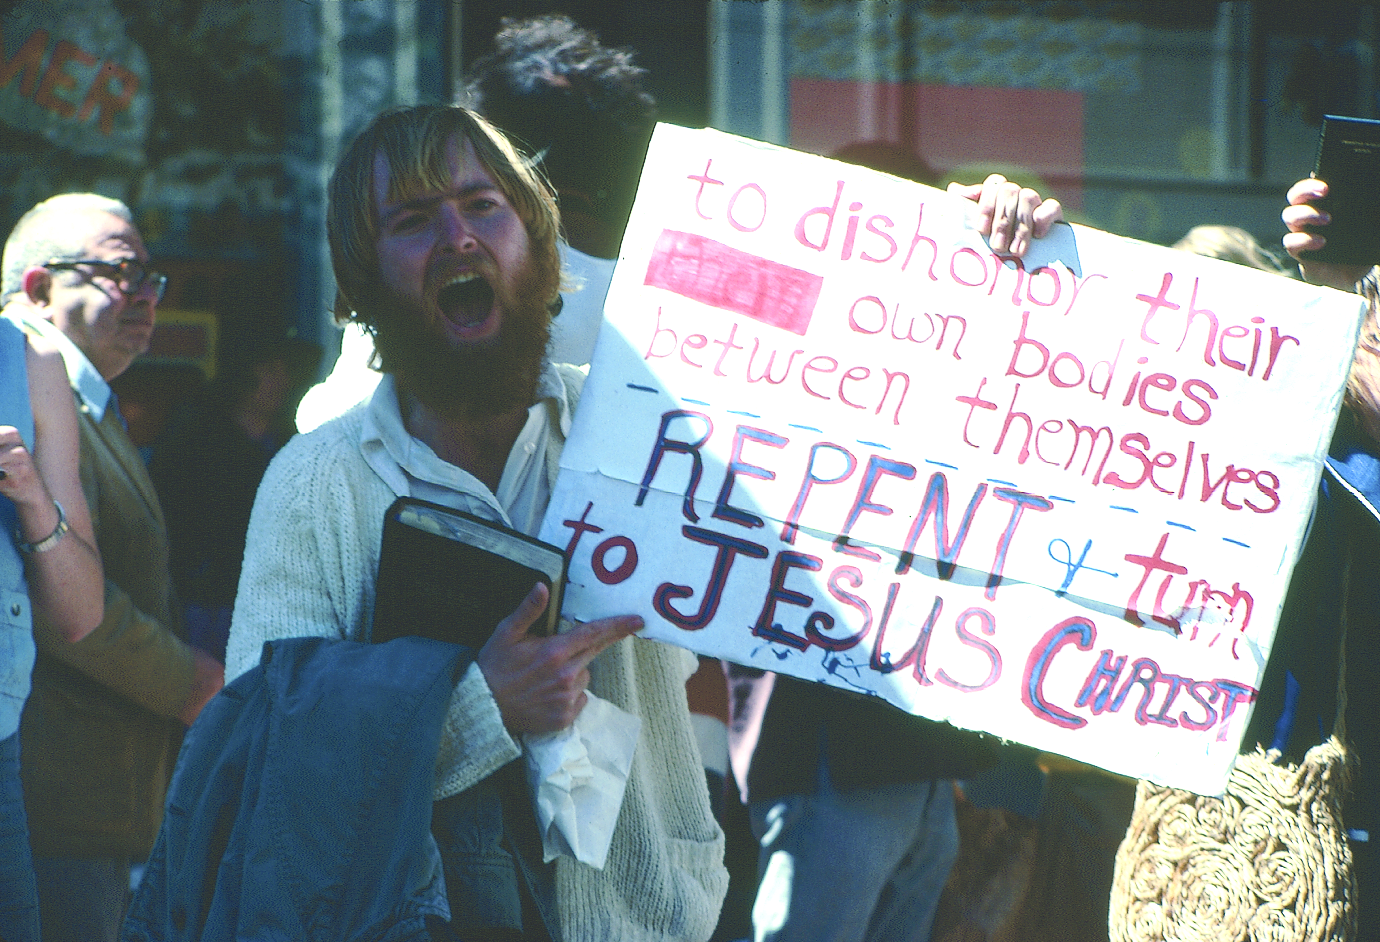 MER
to dishonor their
own bodies
between themselves
REPENT & turn
to JESUS CHRIST